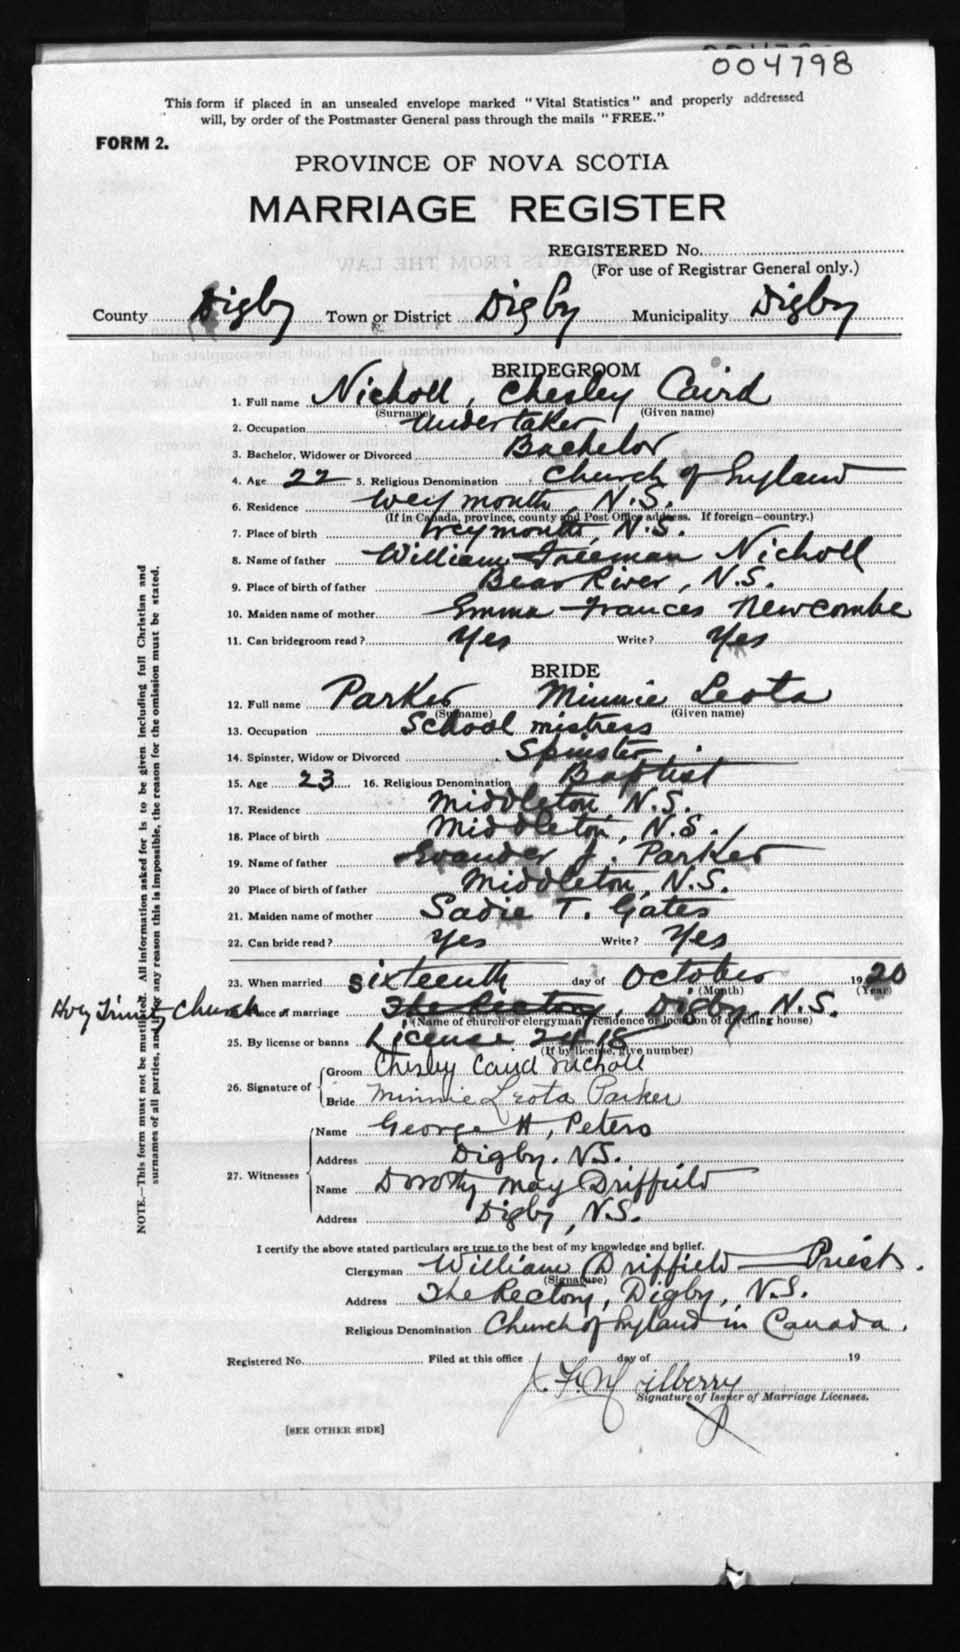 004798
This form if placed in an unsealed envelope marked "Vital Statistics" and properly addressed
will, by order of the Postmaster General pass through the mails "FREE."
FORM 2.
PROVINCE OF NOVA SCOTIA
MARRIAGE REGISTER
REGISTERED No.
(For use of Registrar General only.)
County Digby Town or District Digby Municipality Digby
BRIDEGROOM
1. Full name Nicholl, Chesley Caird
(Surname) (Given name)
2. Occupation Undertaker
3. Bachelor, Widower or Divorced Bachelor
4. Age 22 5. Religious Denomination Church of England
6. Residence Weymouth, N.S.
(If in Canada, province, county and Post Office address. If foreign—country.)
7. Place of birth Weymouth, N.S.
8. Name of father William Freeman Nicholl
9. Place of birth of father Bear River, N.S.
10. Maiden name of mother Emma Frances Newcombe
11. Can bridegroom read? Yes Write? Yes
BRIDE
12. Full name Parker Minnie Leota
(Surname) (Given name)
13. Occupation School mistress
14. Spinster, Widow or Divorced Spinster
15. Age 23 16. Religious Denomination Baptist
17. Residence Middleton, N.S.
18. Place of birth Middleton, N.S.
19. Name of father Evander J. Parker
20 Place of birth of father Middleton, N.S.
21. Maiden name of mother Sadie T. Gates
22. Can bride read? Yes Write? Yes
23. When married sixteenth day of October 1920
(Month) (Year)
Holy Trinity Church Place of marriage The Rectory, Digby, N.S.
(Name of church or clergyman's residence or location of dwelling house)
25. By license or banns License 2418
(If by license, give number)
26. Signature of Groom Chesley Caird Nicholl
Bride Minnie Leota Parker
27. Witnesses
Name George H. Peters
Address Digby, N.S.
Name Dorothy May Driffield
Address Digby, N.S.
I certify the above stated particulars are true to the best of my knowledge and belief.
Clergyman William Driffield — Priest.
(Signature)
Address The Rectory, Digby, N.S.
Religious Denomination Church of England in Canada.
Registered No. Filed at this office day of 19
Signature of Issuer of Marriage Licenses.
[SEE OTHER SIDE]
NOTE.—This form must not be mutilated. All information asked for is to be given including full Christian and
surnames of all parties, and for any reason this is impossible, the reason for the omission must be stated.